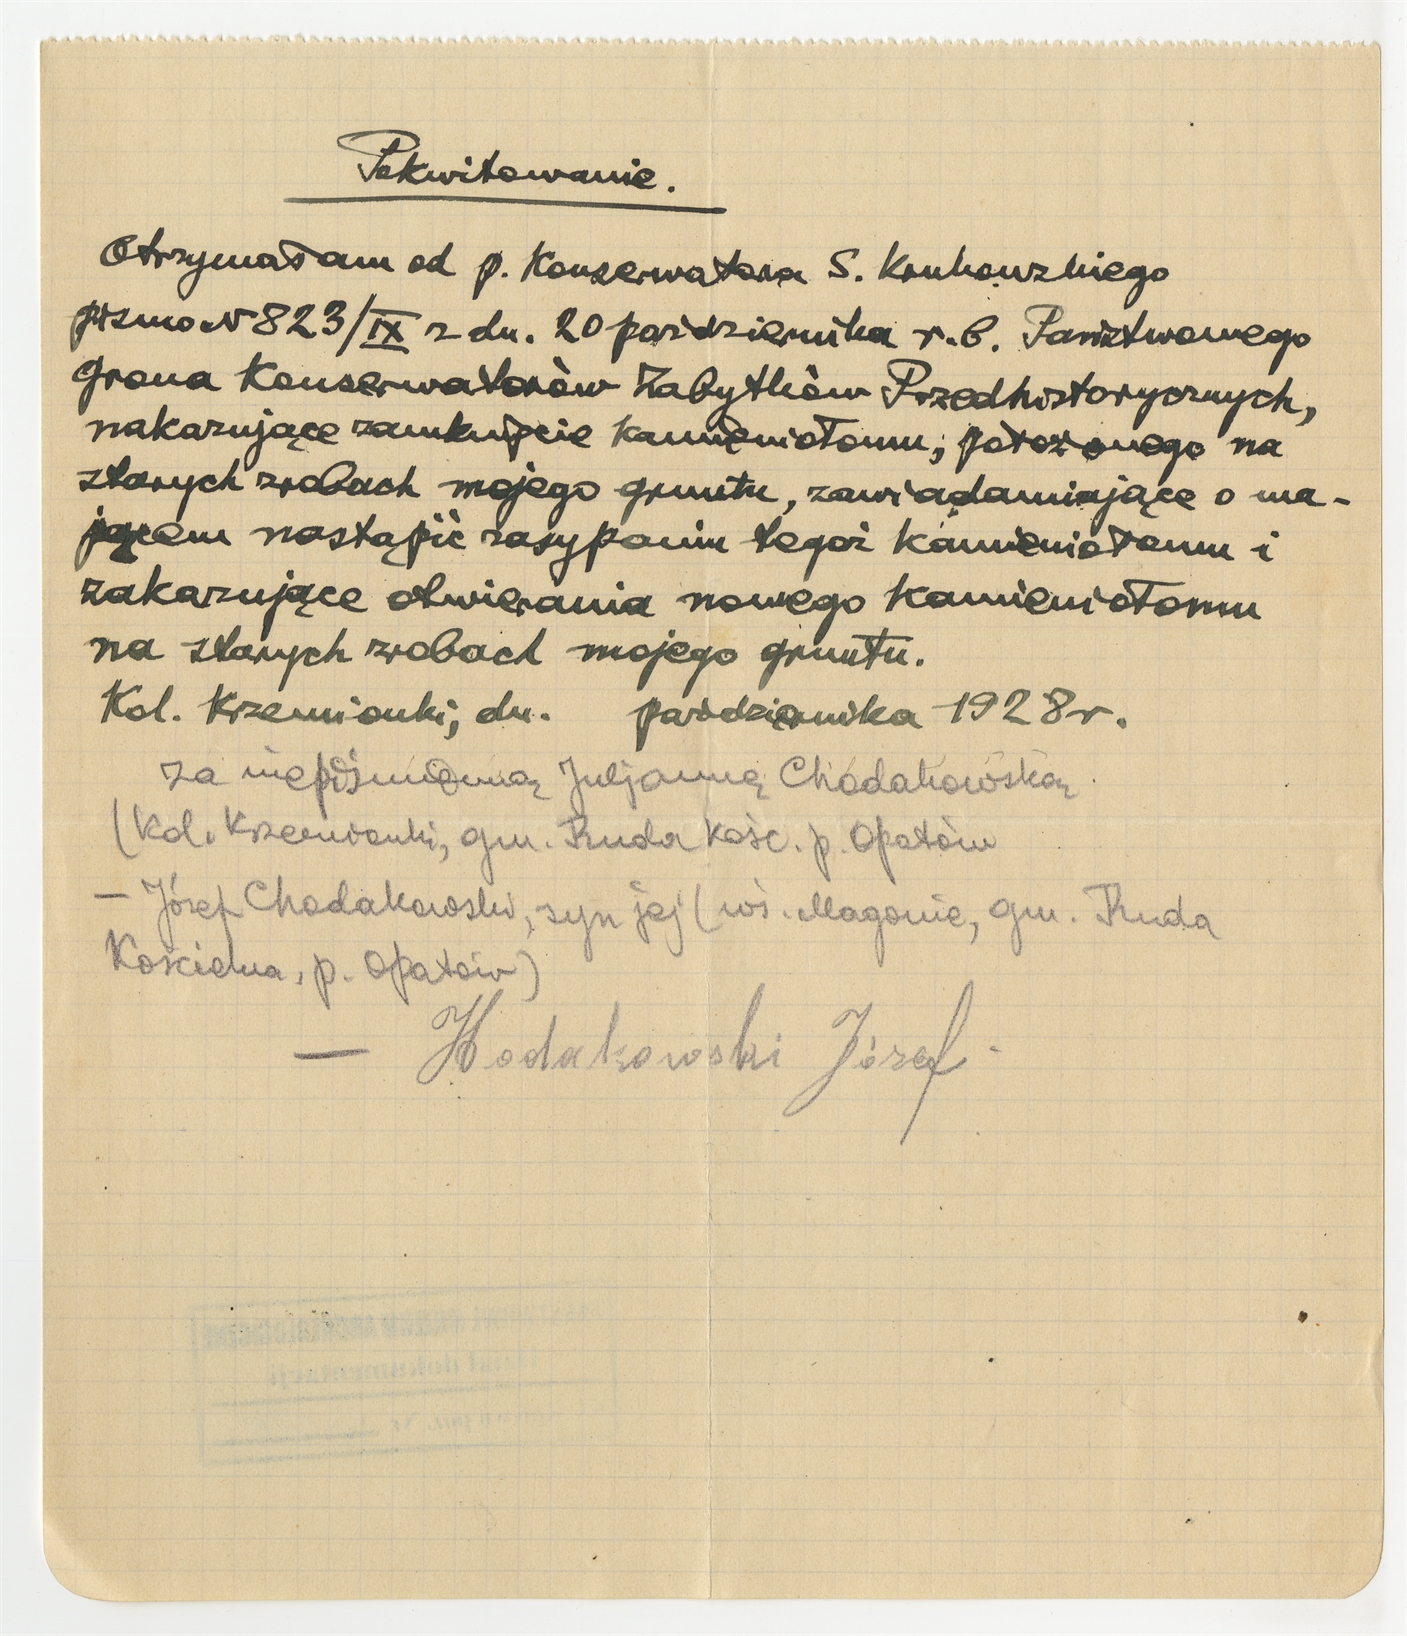 Pokwitowanie.
Otrzymałam od p. Konserwatora S. Krukowskiego
pismo N 823/IX z dn. 20 października r.b. Państwowego
Grona Konserwatorów Zabytków Przedhistorycznych,
nakazujące zamknięcie kamieniołomu, położonego na
starych zrobach mojego gruntu, zawiadamiające o ma-
jącem nastąpić zasypaniu tegoż kamieniołomu i
zakazujące otwierania nowego kamieniołomu
na starych zrobach mojego gruntu.
Kol. Krzemionki, dn. października 1928 r.
za niepiśmienną Juljannę Chodakowską
(Kol. Krzemionki, gm. Ruda Kośc. p. Opatów
— Józef Chodakowski, syn jej (wś. Magonie, gm. Ruda
Kościelna, p. Opatów)
— Hodakowski Józef.